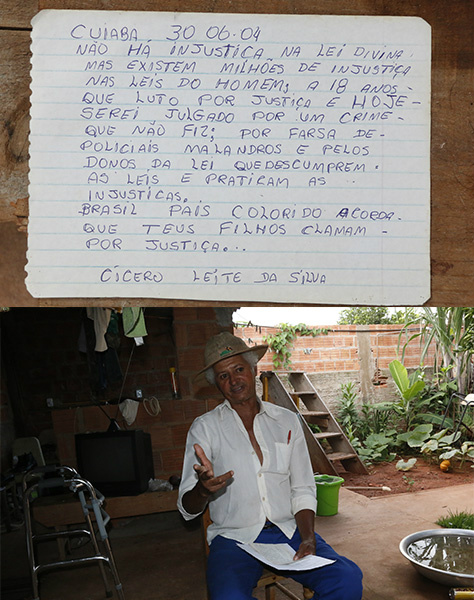 CUIABA 30 06.04
NÃO HÁ INJUSTIÇA NA LEI DIVINA
MAS EXISTEM MILHÕES DE INJUSTIÇA
NAS LEIS DO HOMEM; A 18 ANOS-
QUE LUTO POR JUSTIÇA E HOJE-
SEREI JULGADO POR UM CRIME-
QUE NÃO FIZ; POR FARSA DE-
POLICIAIS MALANDROS E PELOS
DONOS DA LEI QUE DESCUMPREM-
AS LEIS E PRATICAM AS
INJUSTIÇAS.
BRASIL PAIS COLORIDO ACORDA-
QUE TEUS FILHOS CLAMAM-
POR JUSTIÇA...
CÍCERO LEITE DA SILVA